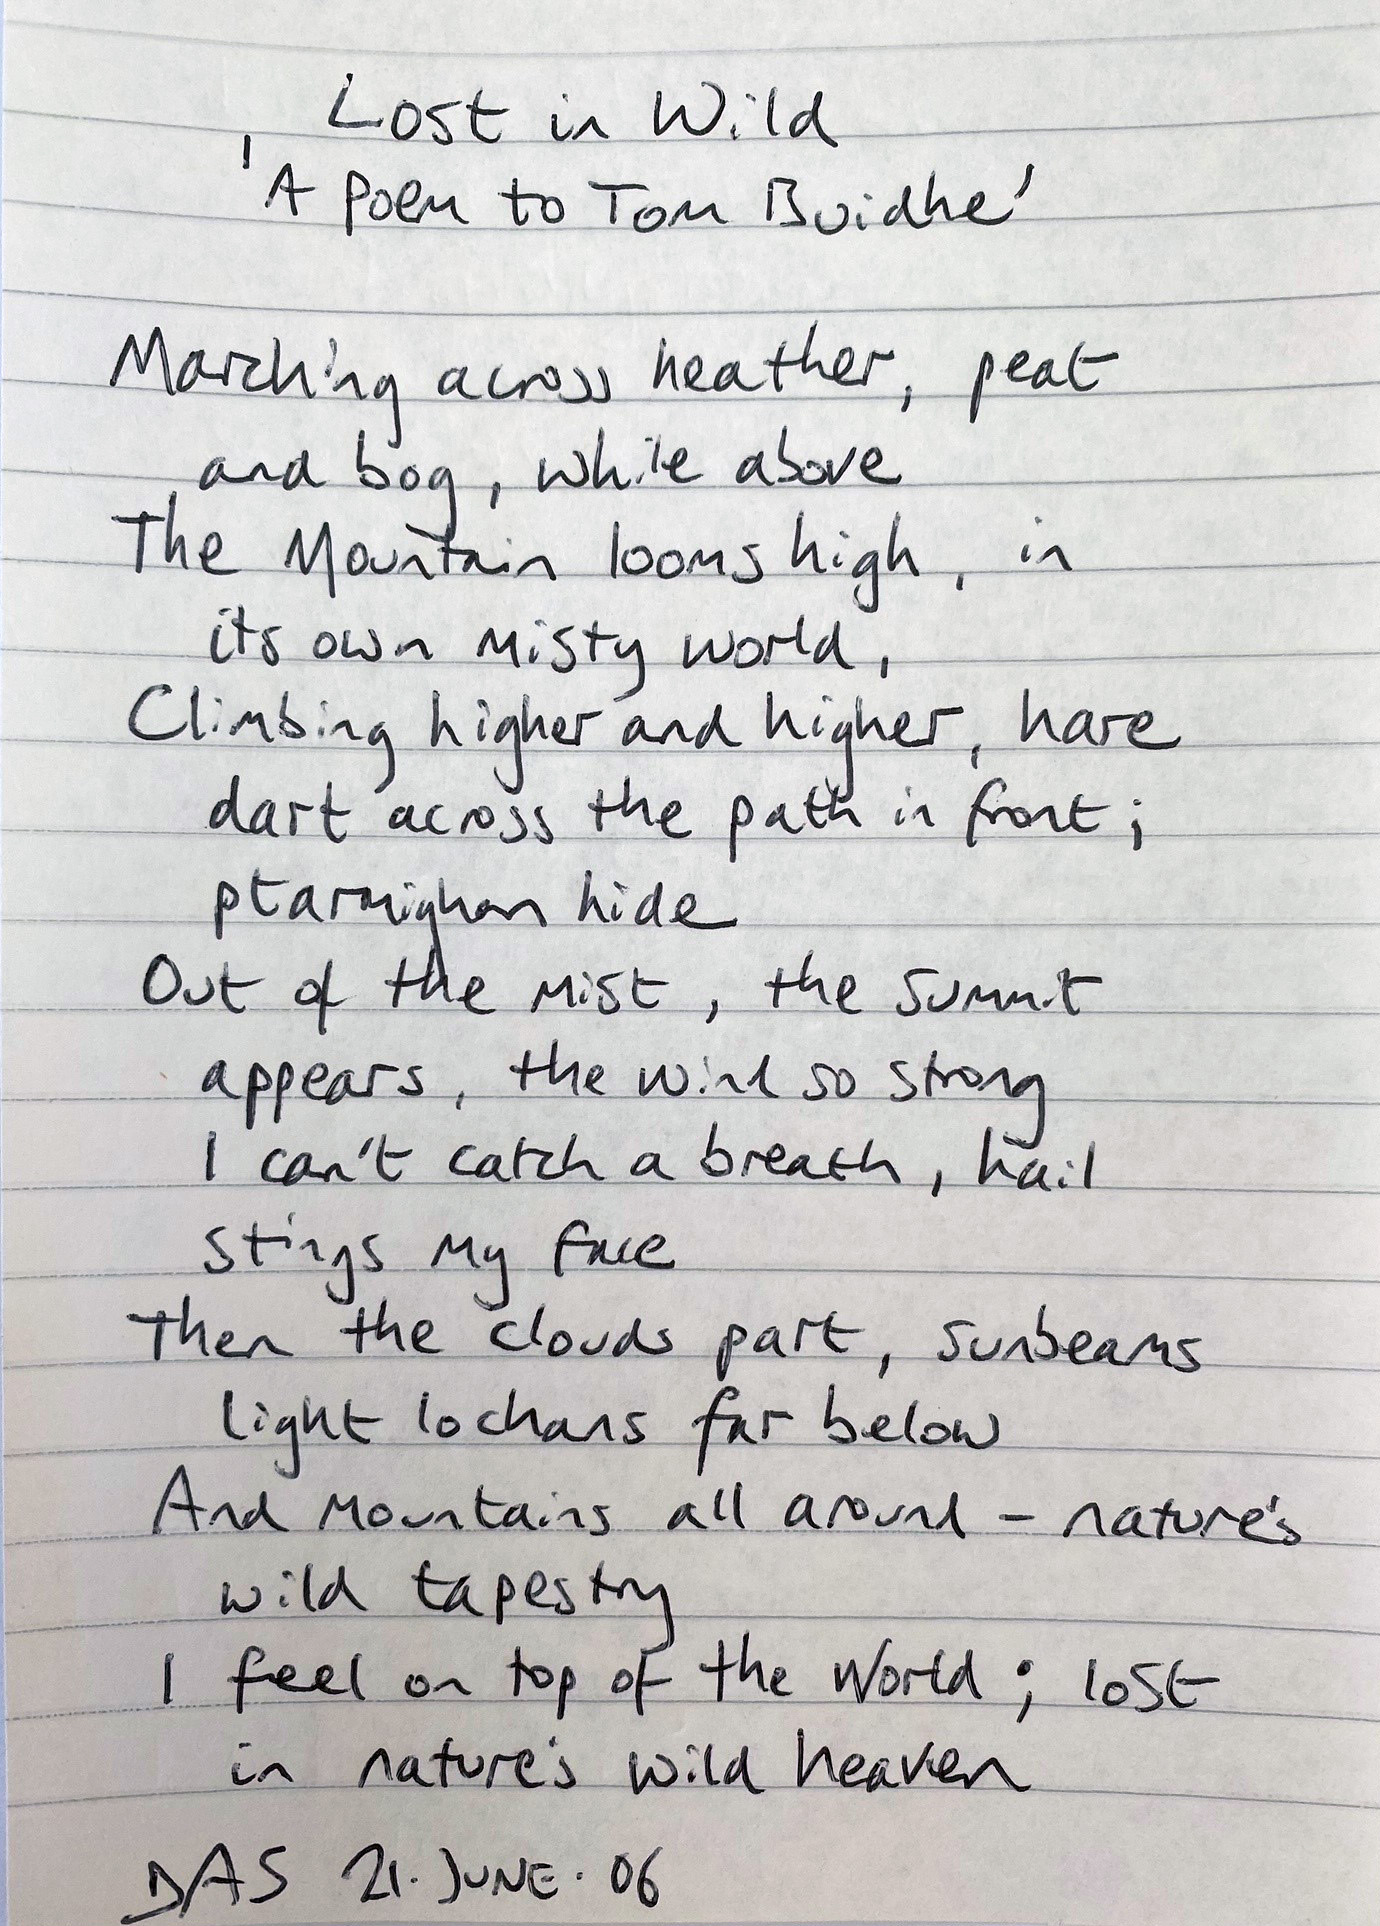 Lost in Wild
'A Poem to Tom Buidhe'
Marching across heather, peat
and bog, while above
The Mountain looms high, in
its own misty world,
Climbing higher and higher, hare
dart across the path in front;
ptarmighan hide
Out of the mist, the summit
appears, the wind so strong
I can't catch a breath, hail
stings my face
Then the clouds part, sunbeams
light lochans far below
And mountains all around - nature's
wild tapestry
I feel on top of the World; lost
in nature's wild heaven
DAS 21. JUNE. 06